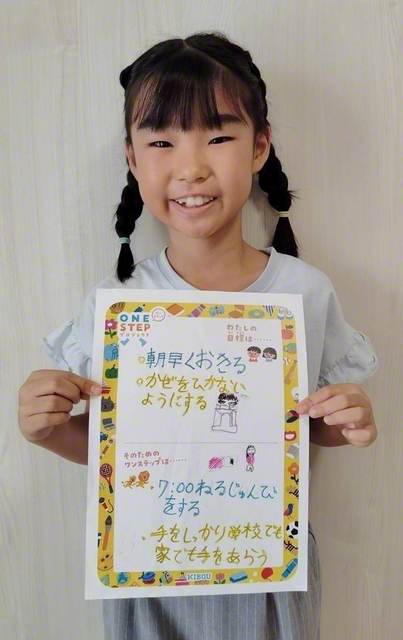 ONE
STEP
プロジェクト
わたしの
目標は……
朝早くおきる
かぜをひかない
ようにする
そのための
ワンステップは……
・7:00ねるじゅんび
をする
・手をしっかり学校でも
家でも手をあらう
KIBOU